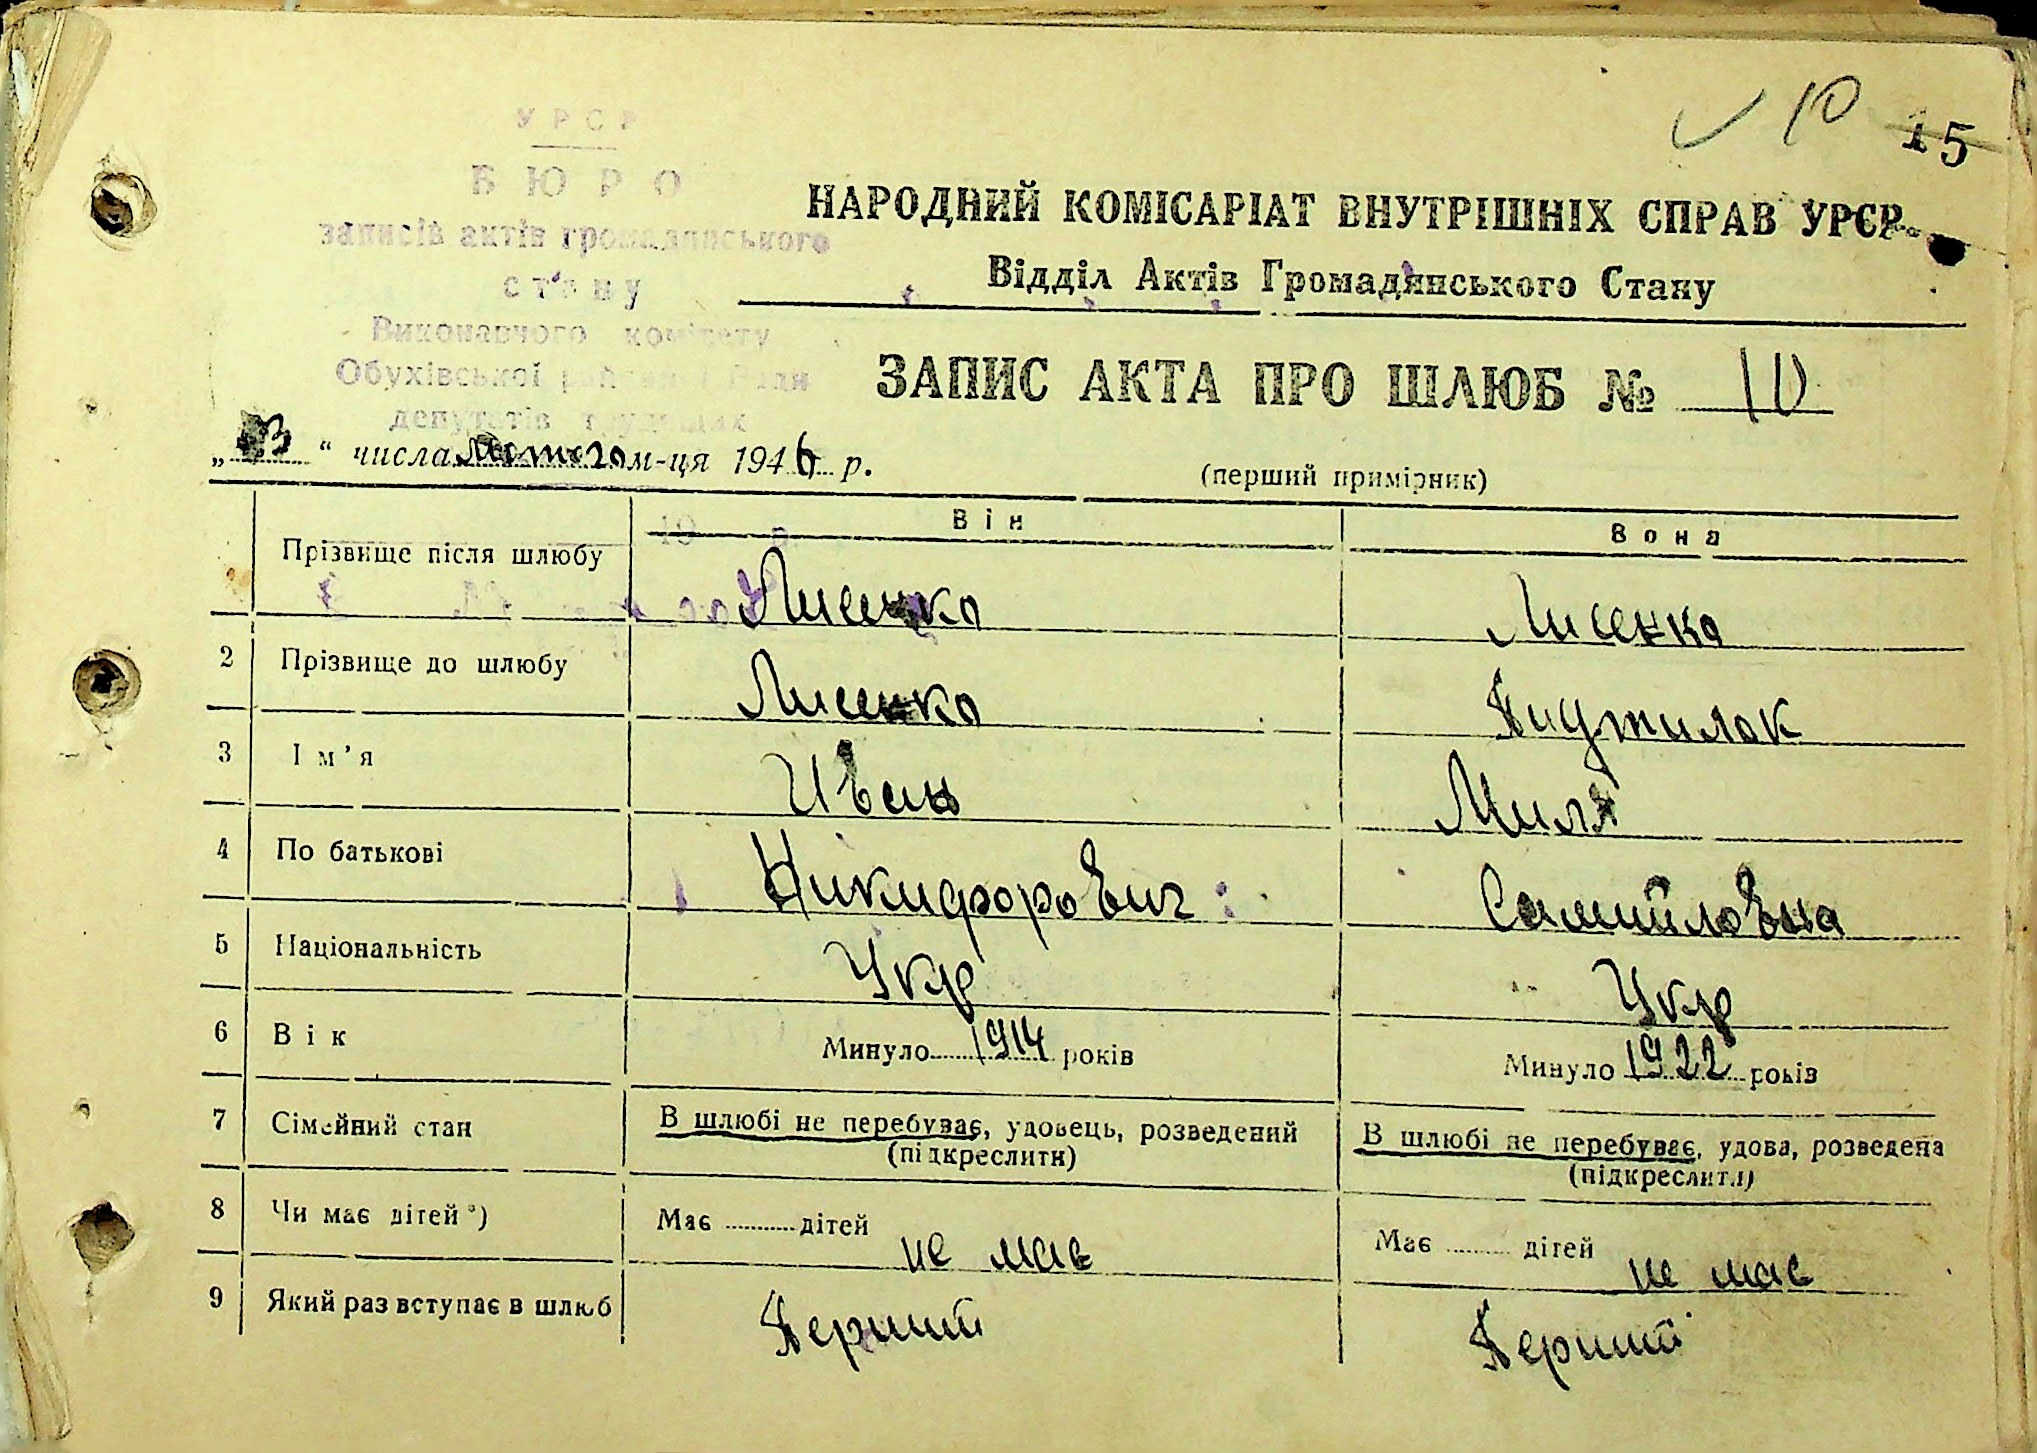 10 15
УРСР
БЮРО
записів актів громадянського
стану
Виконавчого комітету
Обухівської районної Ради
депутатів трудящих
НАРОДНИЙ КОМІСАРІАТ ВНУТРІШНІХ СПРАВ УРСР
Відділ Актів Громадянського Стану
ЗАПИС АКТА ПРО ШЛЮБ № 10
„ “ числа Лютого м-ця 1946 р.
(перший примірник)
Він Вона
Прізвище після шлюбу Лисенко Лисенко
2 Прізвище до шлюбу Лисенко Пиджилак
3 Ім’я Иван Миля
4 По батькові Никифорович Самийловна
5 Національність Укр Укр
6 Вік Минуло 1914 років Минуло 1922 років
7 Сімейний стан В шлюбі не перебуває, удовець, розведений В шлюбі не перебуває, удова, розведена
(підкреслити) (підкреслити)
8 Чи має дітей*) Має ........ дітей не має Має ........ дітей не має
9 Який раз вступає в шлюб Перший Перший